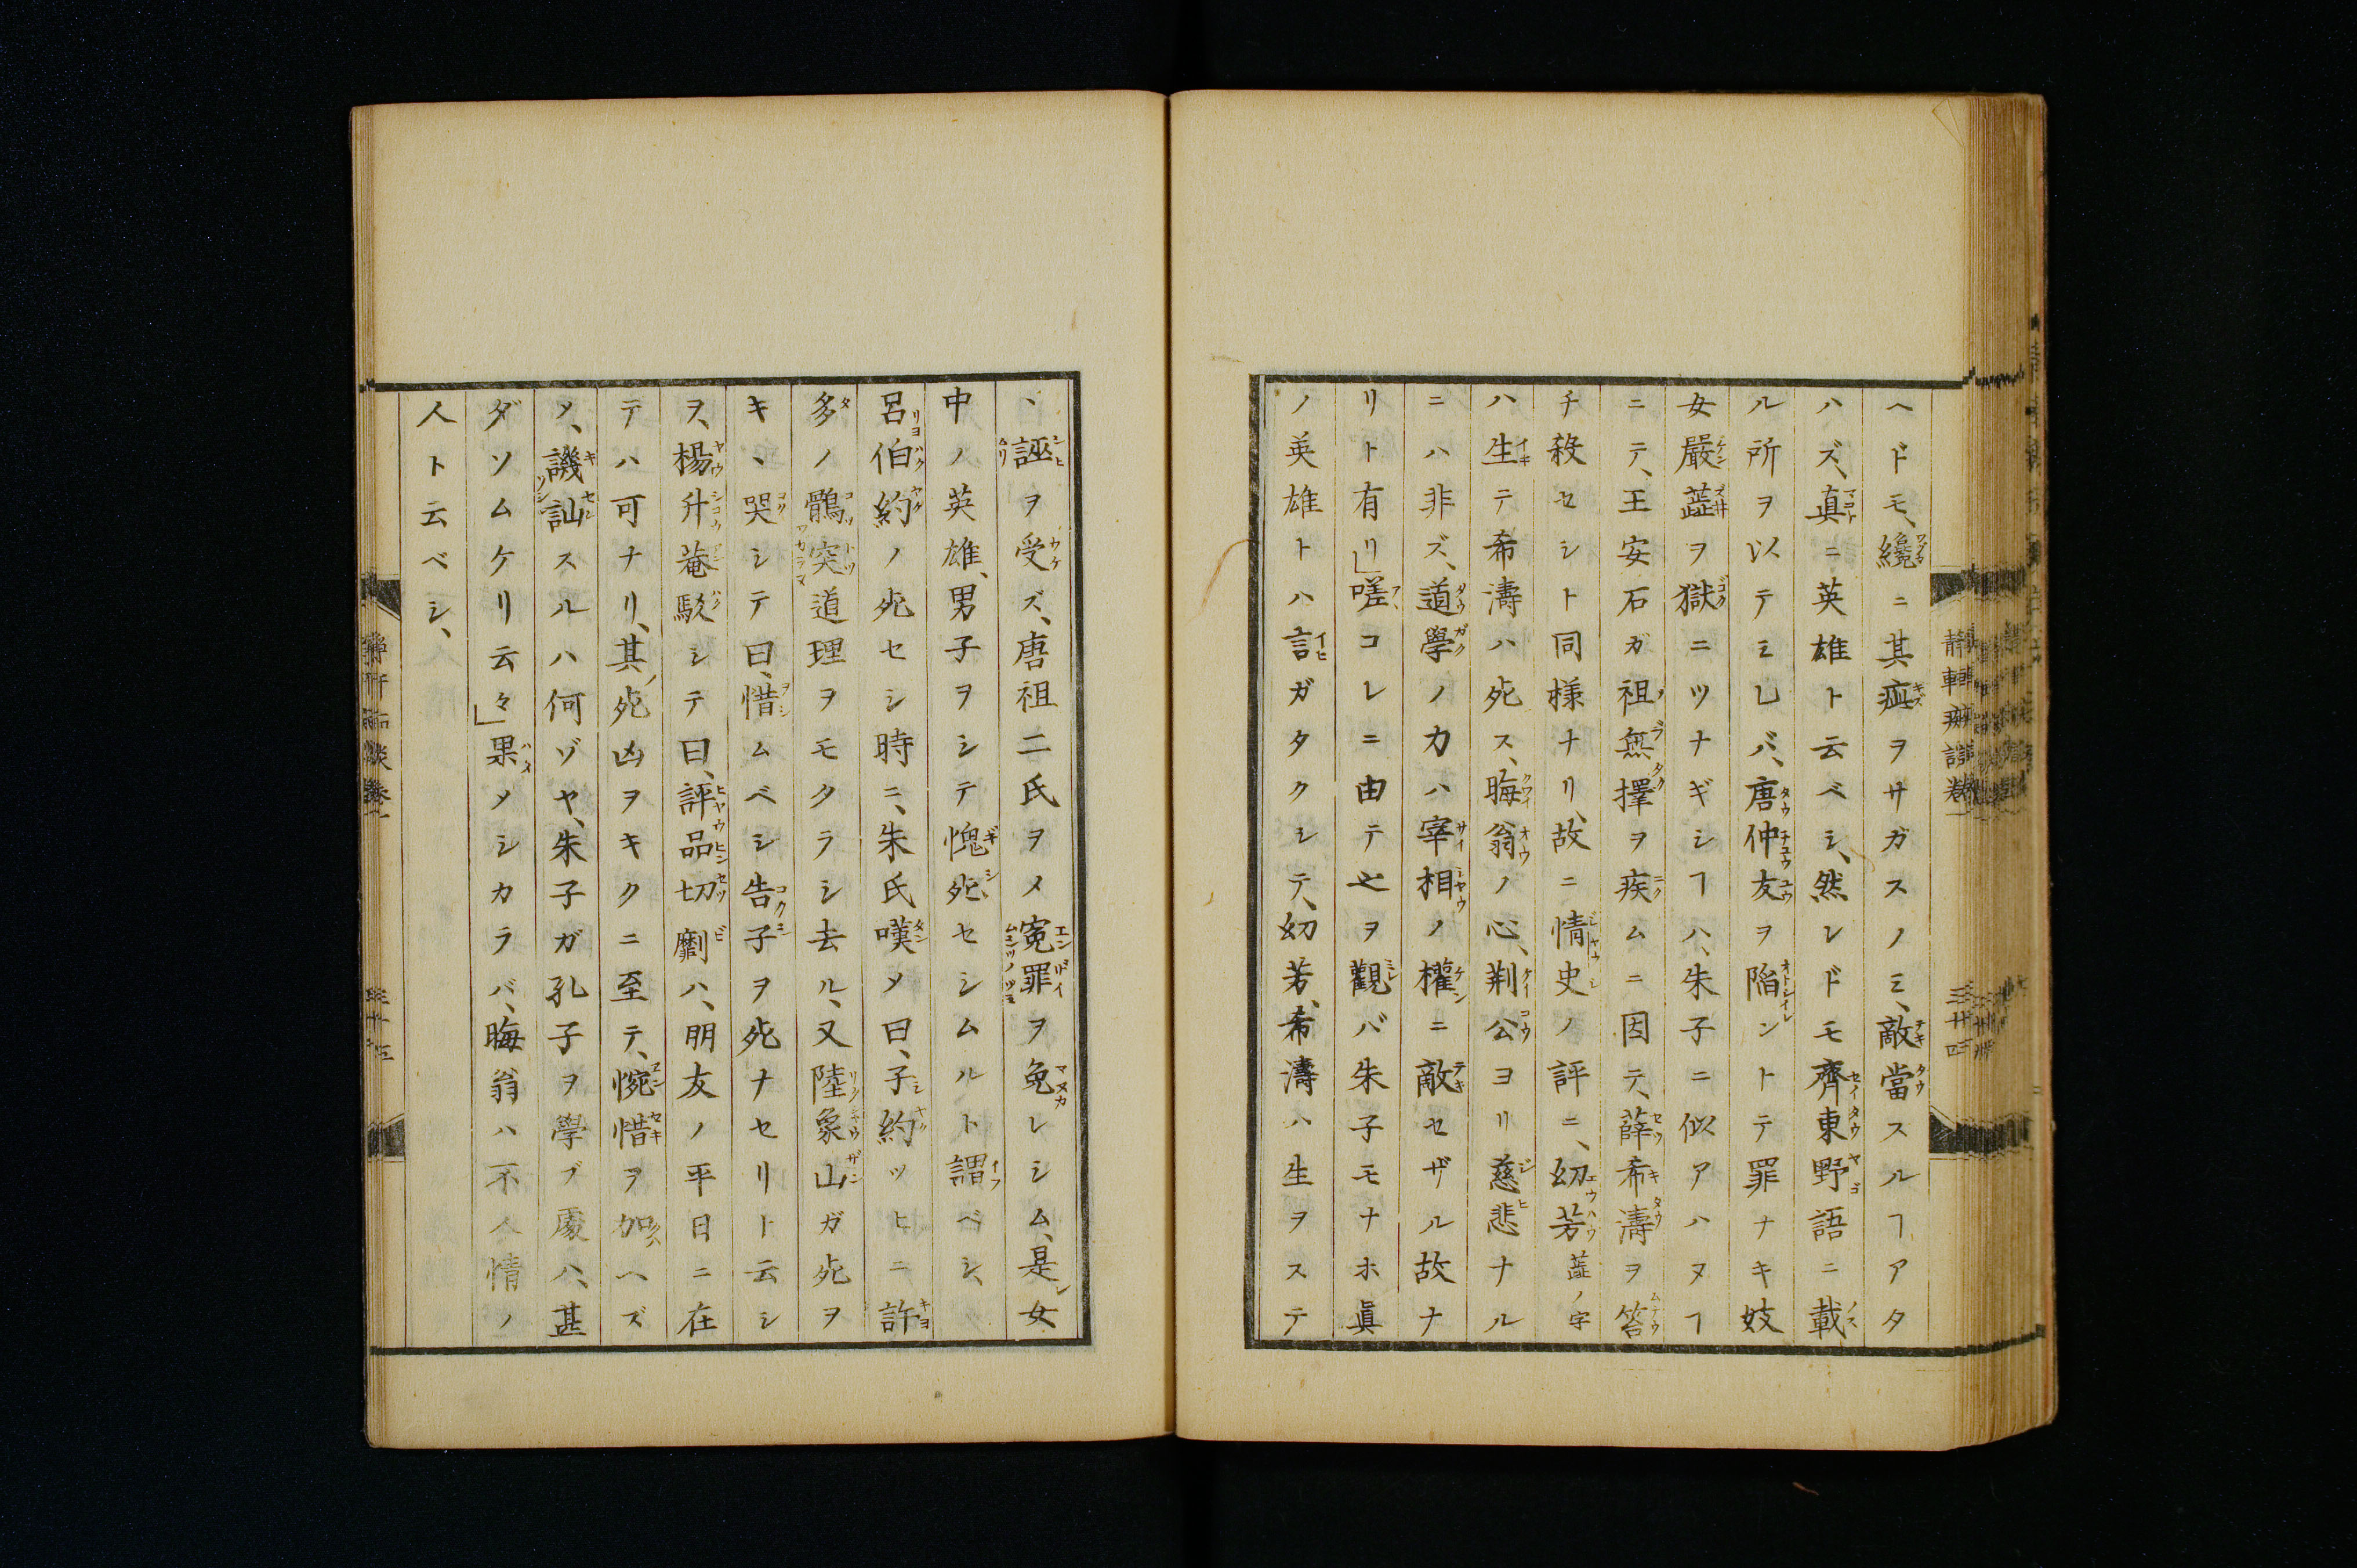 ヘドモ、纔ニ其疵ヲサガスノミ、敵當スルヿアタ
ハズ、真ニ英雄ト云ベシ、然レドモ齊東野語ニ載
ル所ヲ以テミレバ、唐仲友ヲ陥ントテ罪ナキ妓
女嚴蘂ヲ獄ニツナギシヿハ、朱子ニ似アハヌヿ
ニテ、王安石ガ祖無擇ヲ疾ムニ因テ、薛希濤ヲ笞
チ殺セシト同様ナリ、故ニ情史ノ評ニ、幼芳蘂ノ字
ハ生テ希濤ハ死ス、晦翁ノ心、荆公ヨリ慈悲ナル
ニハ非ズ、道學ノ力ハ宰相ノ權ニ敵セザル故ナ
リト有リ」嗟コレニ由テ之ヲ觀バ朱子モナホ眞
ノ英雄トハ言ガタクシテ、幼芳、希濤ハ生ヲステ
、誣ヲ受ズ、唐祖二氏ヲメ寃罪ヲ免レシム、是女
中ノ英雄、男子ヲシテ愧死セシムルト謂ベシ、
呂伯約ノ死セシ時ニ、朱氏嘆メ曰、子約ツヒニ許
多ノ鶻突道理ヲモクラシ去ル、又陸象山ガ死ヲ
キ、哭シテ曰、惜ムベシ告子ヲ死ナセリト云シ
ヲ、楊升菴駁シテ曰、評品切劘ハ、朋友ノ平日ニ在
テハ可ナリ、其死凶ヲキクニ至テ、惋惜ヲ加ヘズ
メ、譏訕スルハ何ゾヤ、朱子ガ孔子ヲ學ブ處ハ、甚
ダソムケリ云々」果メシカラバ、晦翁ハ不人情ノ
人ト云ベシ、